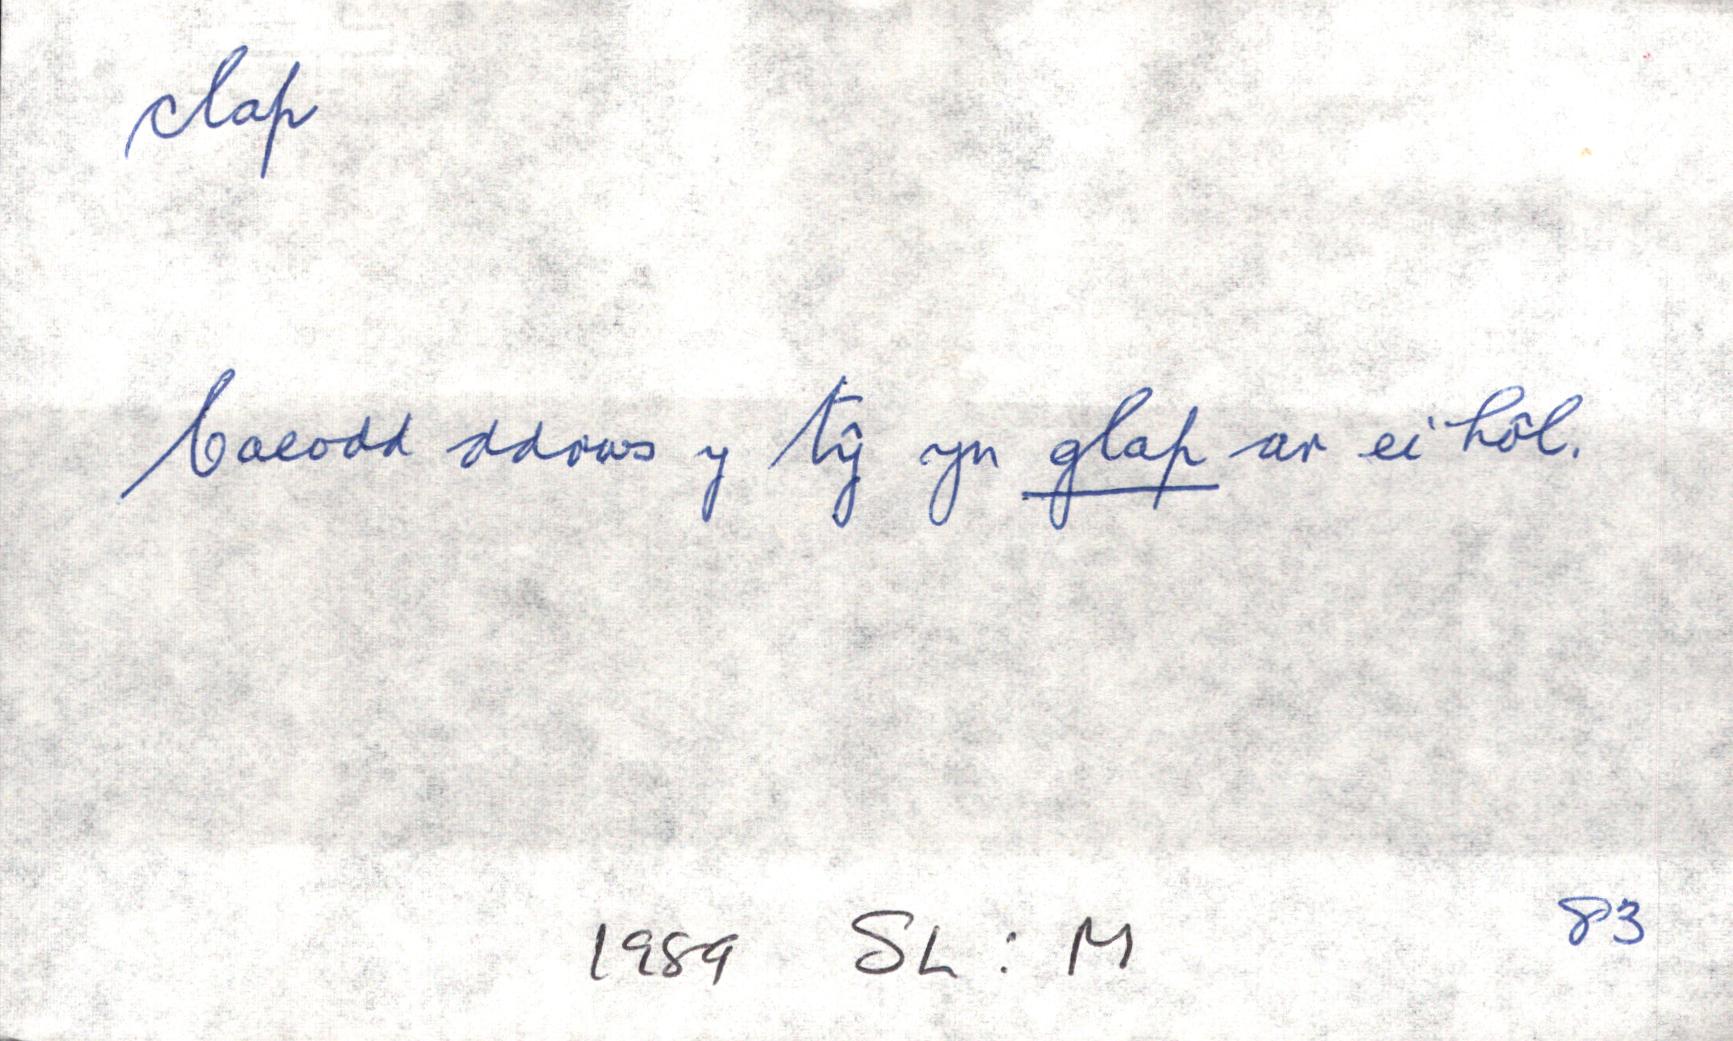 clap
Caeodd ddrws y tŷ yn glap ar ei hôl.
83
1989 SL : M